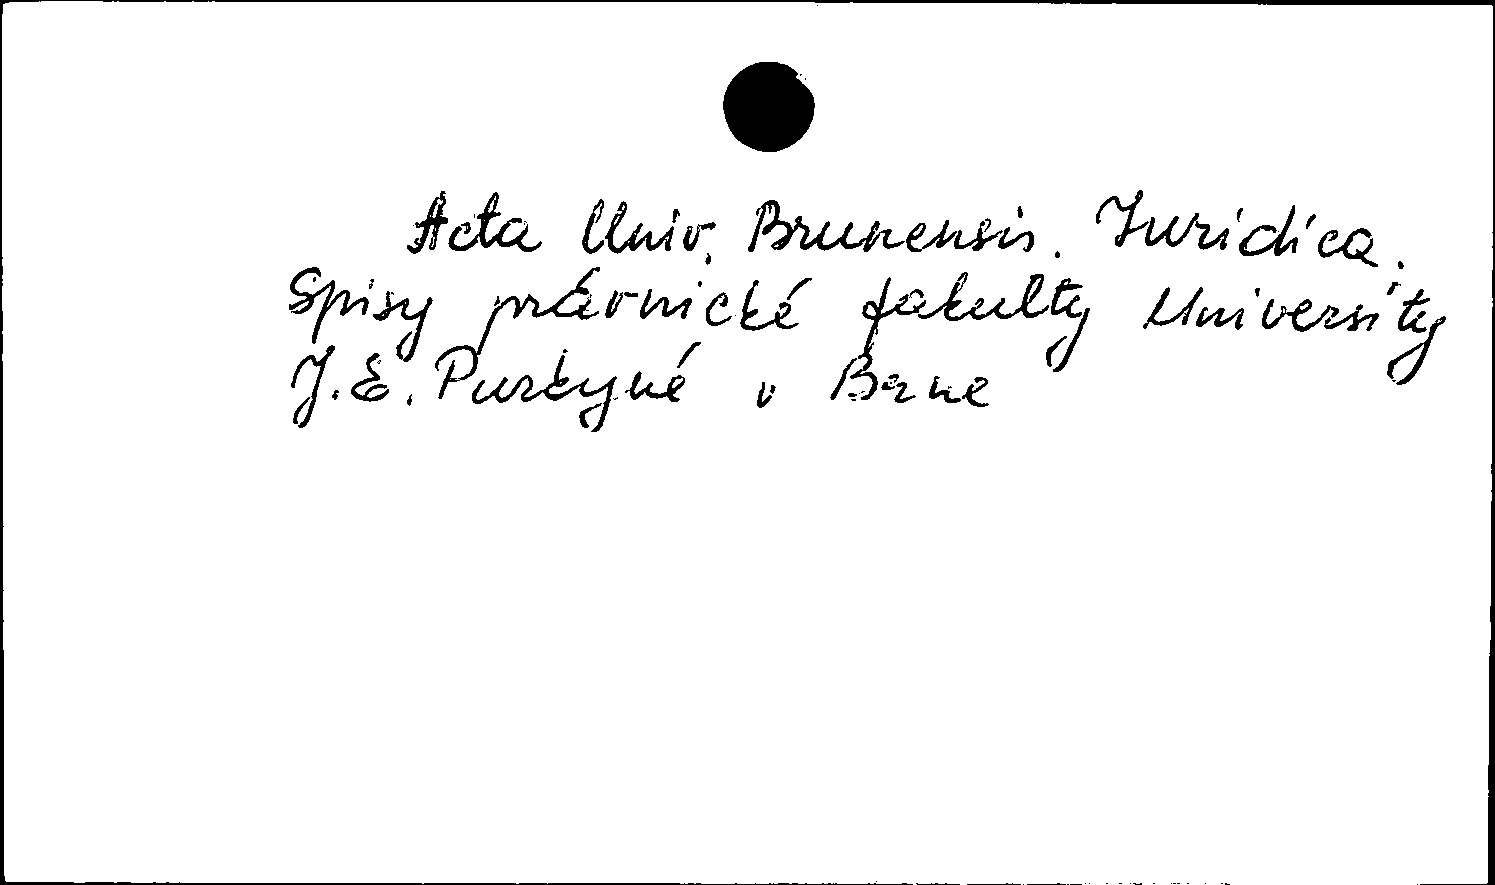 Acta Univ. Brunensis. Iuridica.
Spisy právnické fakulty University
J. E. Purkyné v Brne